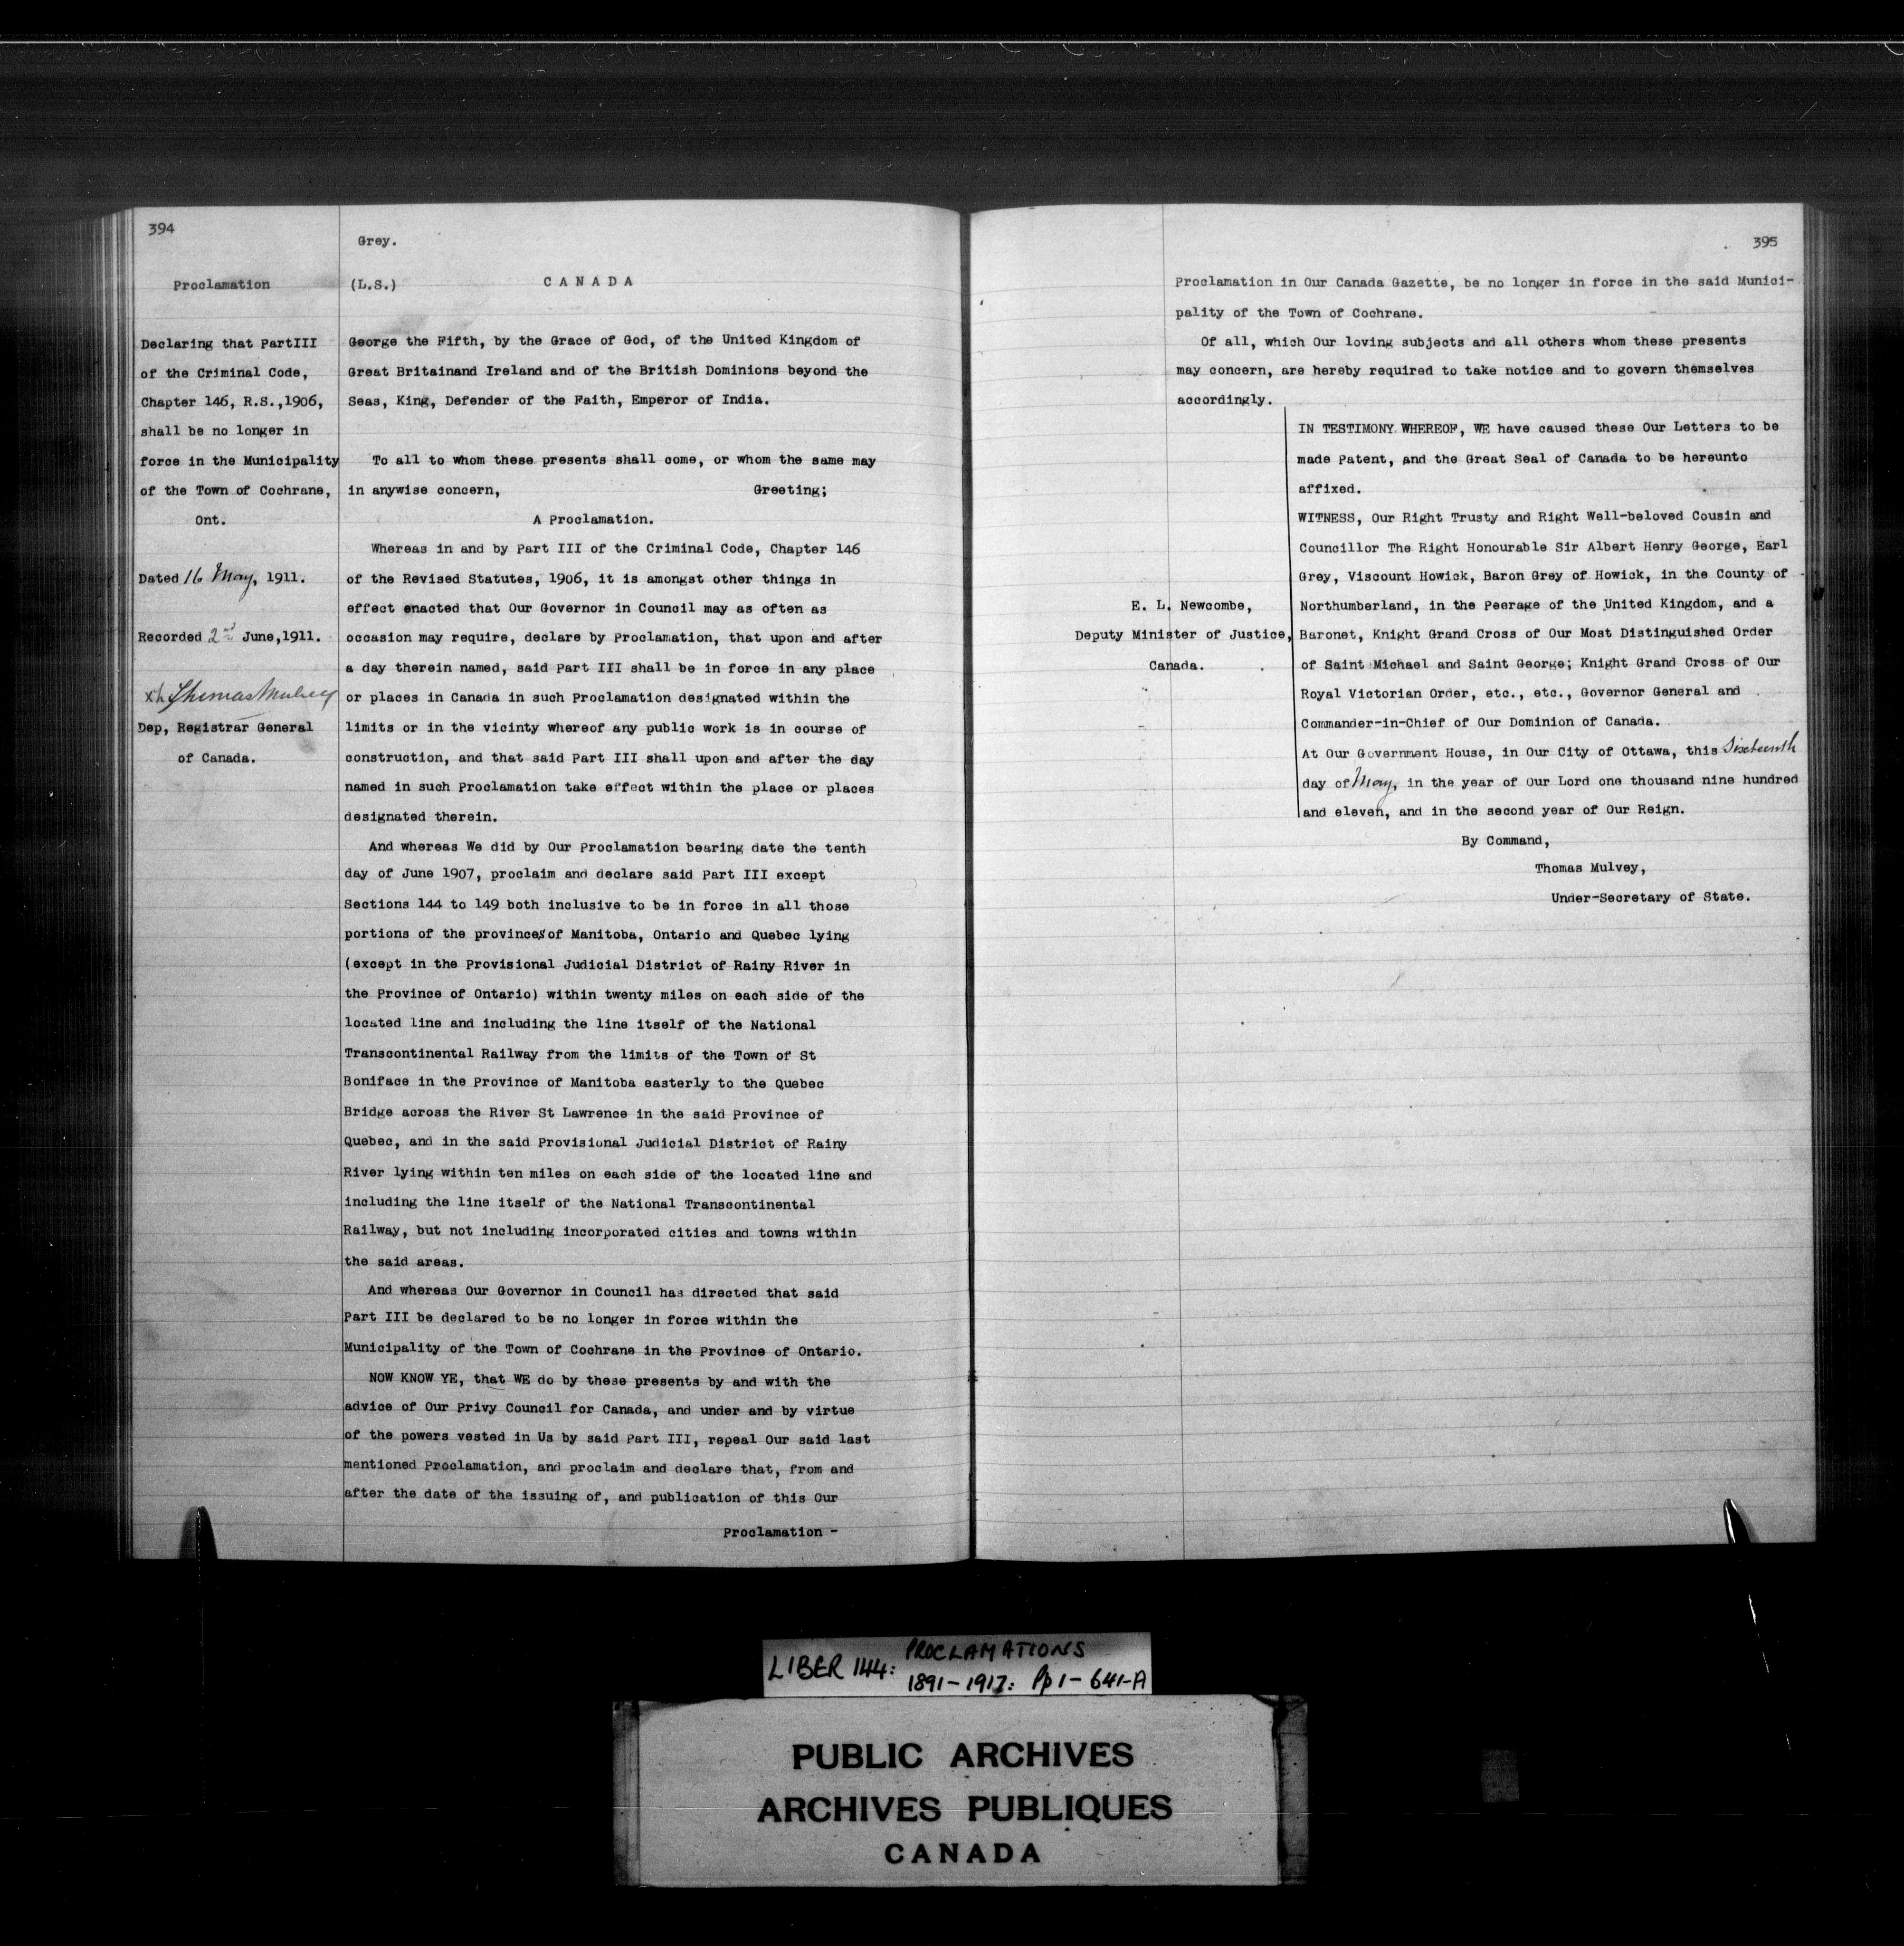 394
Grey.
Proclamation
(L.S.) CANADA
Declaring that PartIII
of the Criminal Code,
Chapter 146, R.S.,1906,
shall be no longer in
force in the Municipality
of the Town of Cochrane,
Ont.
Dated 16 May, 1911.
Recorded 2nd June,1911.
Thomas Mulvey
Dep, Registrar General
of Canada.
George the Fifth, by the Grace of God, of the United Kingdom of
Great Britainand Ireland and of the British Dominions beyond the
Seas, King, Defender of the Faith, Emperor of India.
To all to whom these presents shall come, or whom the same may
in anywise concern, Greeting;
A Proclamation.
Whereas in and by Part III of the Criminal Code, Chapter 146
of the Revised Statutes, 1906, it is amongst other things in
effect enacted that Our Governor in Council may as often as
occasion may require, declare by Proclamation, that upon and after
a day therein named, said Part III shall be in force in any place
or places in Canada in such Proclamation designated within the
limits or in the vicinty whereof any public work is in course of
construction, and that said Part III shall upon and after the day
named in such Proclamation take effect within the place or places
designated therein.
And whereas We did by Our Proclamation bearing date the tenth
day of June 1907, proclaim and declare said Part III except
Sections 144 to 149 both inclusive to be in force in all those
portions of the provinces of Manitoba, Ontario and Quebec lying
(except in the Provisional Judicial District of Rainy River in
the Province of Ontario) within twenty miles on each side of the
located line and including the line itself of the National
Transcontinental Railway from the limits of the Town of St
Boniface in the Province of Manitoba easterly to the Quebec
Bridge across the River St Lawrence in the said Province of
Quebec, and in the said Provisional Judicial District of Rainy
River lying within ten miles on each side of the located line and
including the line itself of the National Transcontinental
Railway, but not including incorporated cities and towns within
the said areas.
And whereas Our Governor in Council has directed that said
Part III be declared to be no longer in force within the
Municipality of the Town of Cochrane in the Province of Ontario.
NOW KNOW YE, that WE do by these presents by and with the
advice of Our Privy Council for Canada, and under and by virtue
of the powers vested in Us by said Part III, repeal Our said last
mentioned Proclamation, and proclaim and declare that, from and
after the date of the issuing of, and publication of this Our
Proclamation -
395
Proclamation in Our Canada Gazette, be no longer in force in the said Munici-
pality of the Town of Cochrane.
Of all, which Our loving subjects and all others whom these presents
may concern, are hereby required to take notice and to govern themselves
accordingly.
E. L. Newcombe,
Deputy Minister of Justice,
Canada.
IN TESTIMONY WHEREOF, WE have caused these Our Letters to be
made Patent, and the Great Seal of Canada to be hereunto
affixed.
WITNESS, Our Right Trusty and Right Well-beloved Cousin and
Councillor The Right Honourable Sir Albert Henry George, Earl
Grey, Viscount Howick, Baron Grey of Howick, in the County of
Northumberland, in the Peerage of the United Kingdom, and a
Baronet, Knight Grand Cross of Our Most Distinguished Order
of Saint Michael and Saint George; Knight Grand Cross of Our
Royal Victorian Order, etc., etc., Governor General and
Commander-in-Chief of Our Dominion of Canada.
At Our Government House, in Our City of Ottawa, this Sixteenth
day of May, in the year of Our Lord one thousand nine hundred
and eleven, and in the second year of Our Reign.
By Command,
Thomas Mulvey,
Under-Secretary of State.
LIBER 144: PROCLAMATIONS
1891-1917: Pp 1-641-A
PUBLIC ARCHIVES
ARCHIVES PUBLIQUES
CANADA